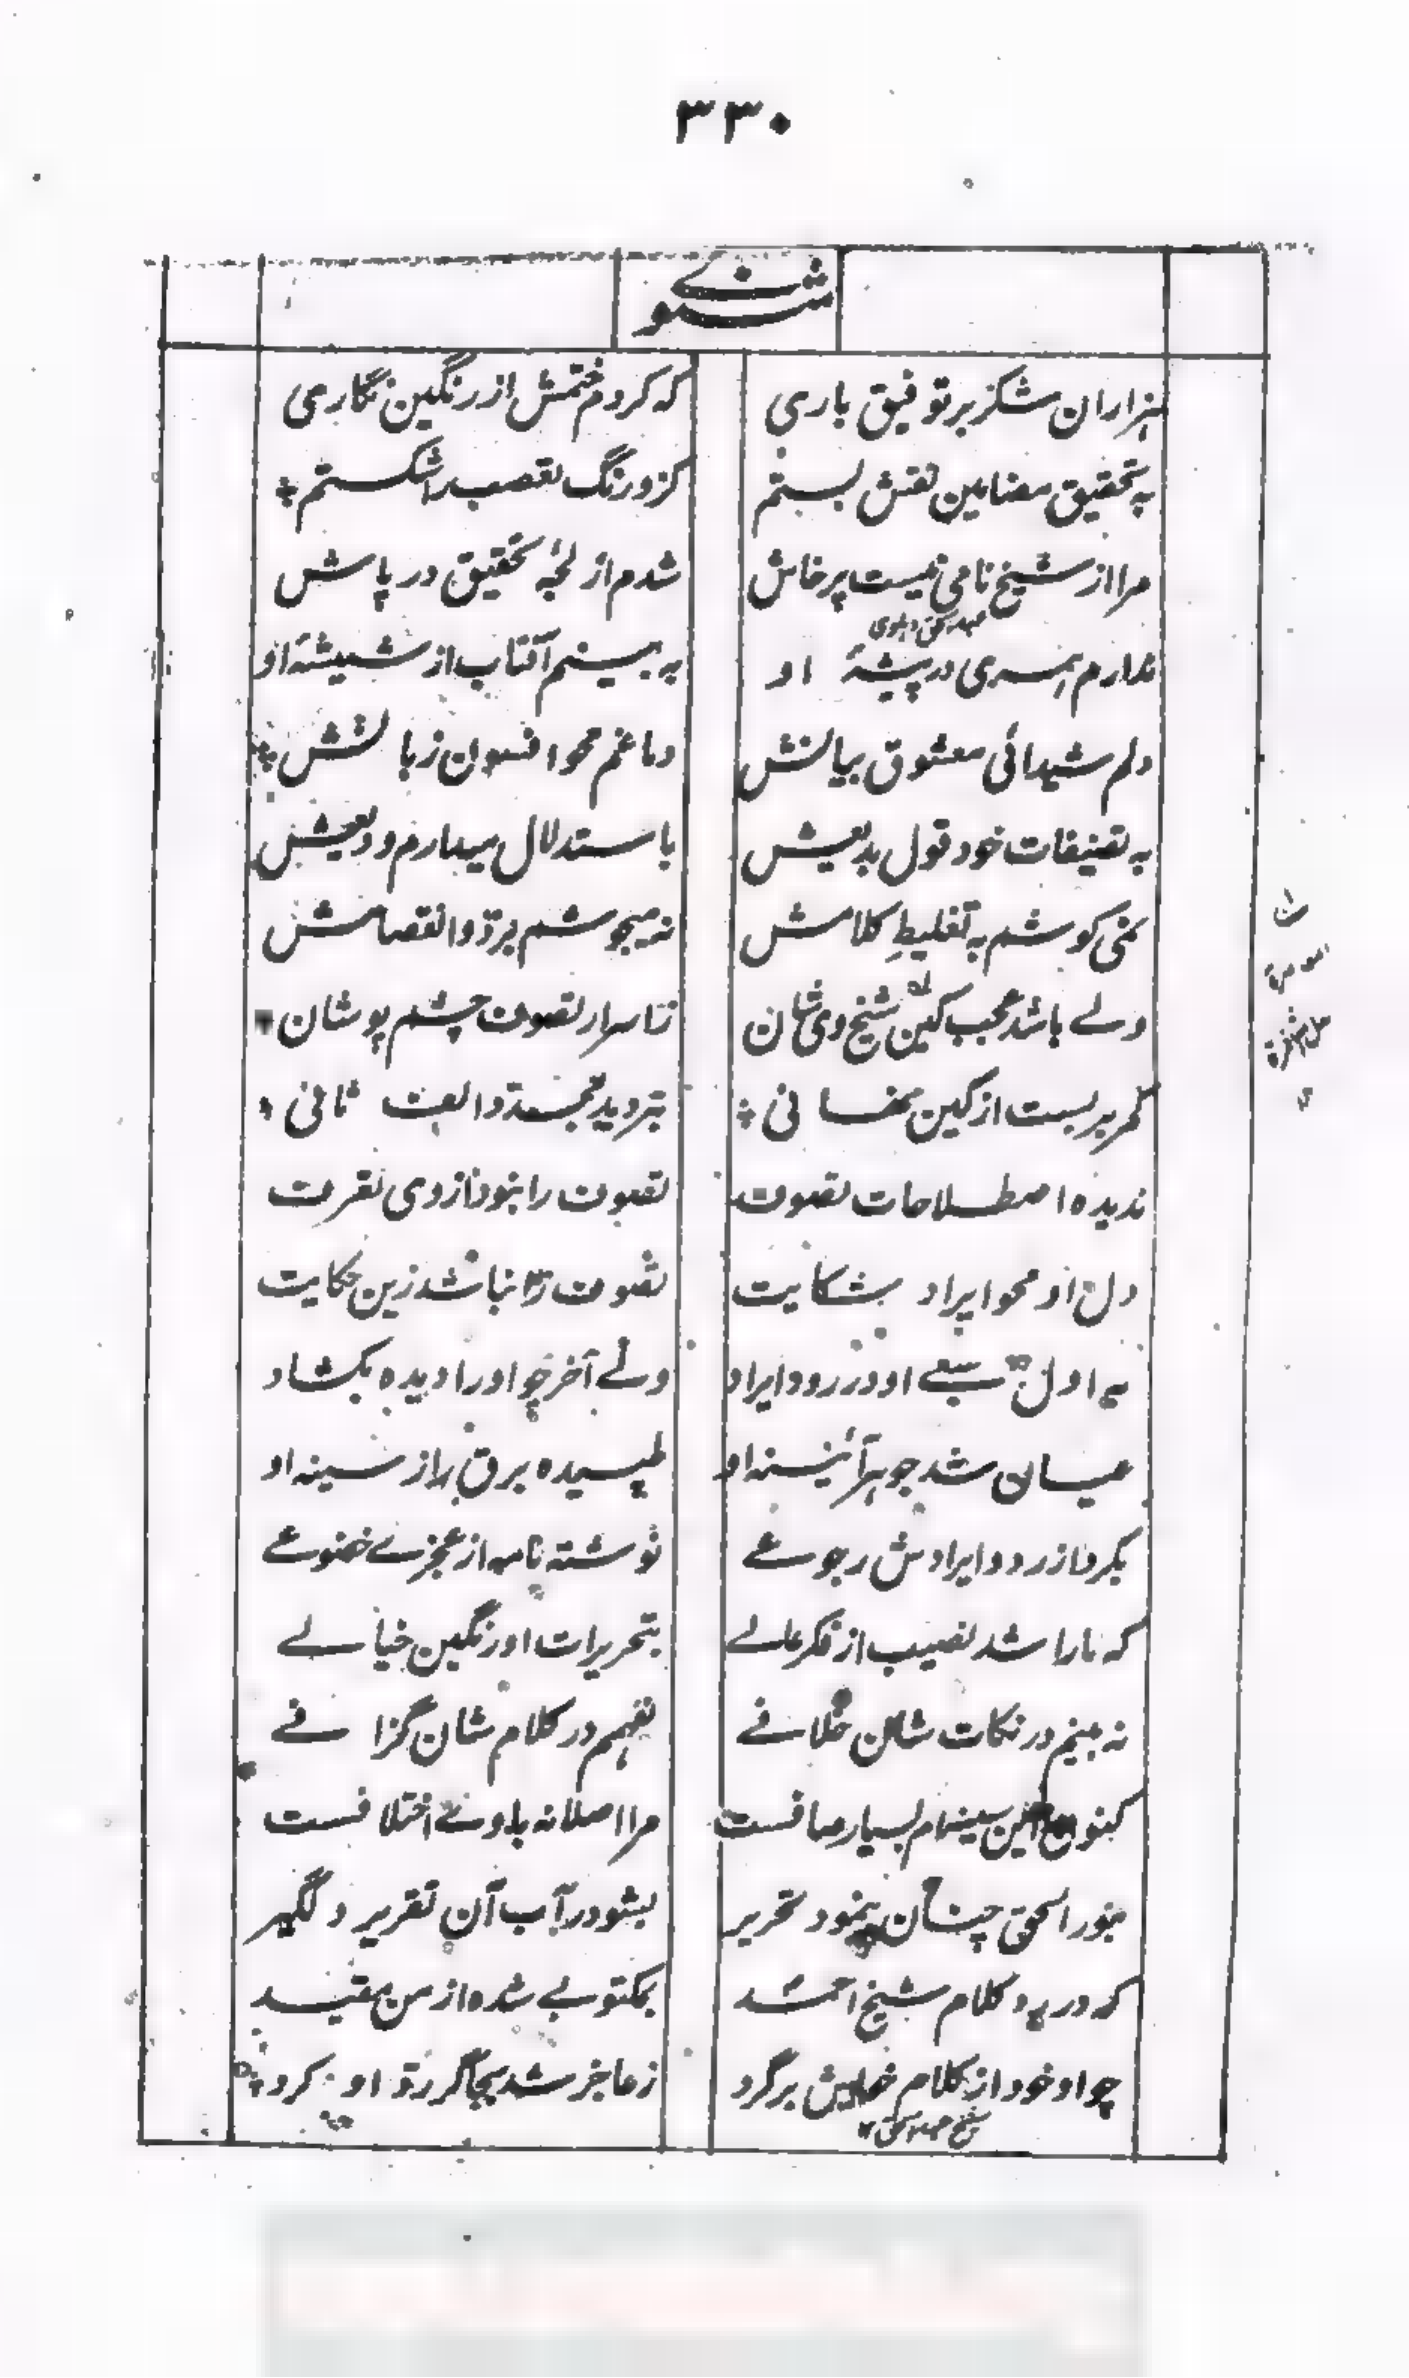 ۳۳۰
مثنوے
هزاران شکر بر توفیق باری که کردم ختمش از رنگین نگاری
به تحقیق مضامین نقش بستم کزو رنگ تعصب را شکستم
مرا از شیخ نامی نیست پرخاش شدم از لجۂ تحقیق در پاش
عبدالحق دہلوی
ندارم ہمسری در پیشۂ او به بینم آفتاب از شیشۂ او
دلم شیدائی معشوق بیانش دماغم محو افسون زبانش
به تصنیفات خود قول بدیعش باستدلال میدارم ودیعش
نمی کوشم به تغلیطِ کلامش نه میجوشم برد و انفصامش
ولے باشد عجب کین شیخ ذی شان ز اسرار تصوف چشم پوشان
کمر بر بست از کین نفسانی بتردید مجدد الف ثانی
ندیده اصطلاحات تصوف تصوف را نبود از وی تعرف
دل او محو ایراد شکایت تصوف را نباشد زین حکایت
به اول سعیے او در رد و ایراد ولے آخر چو او را دیده بکشاد
عیان شد جوہر آئینه او طپیده برق راز سینه او
بکرد از رد و ایرادش رجوعے نوشته نامه از عجزے خضوعے
که مارا شد نصیب از فکر عالے بتحریرات او رنگین خیالے
نه بینم در نکات شان خلافے نفهم در کلام شان گزافے
کنون این سینه‌ام بسیار صافست مرا اصلا نه با وے اختلافست
بنور الحق چنان بنمود تحریر بشو در آب آن تقریر دلگیر
که در رد کلام شیخ احمد بمکتوبے شده از من مقید
چو او خود از کلام خویش برگرد ز عاجز شد بجا گر رد او کرد
شیخ عبدالحق